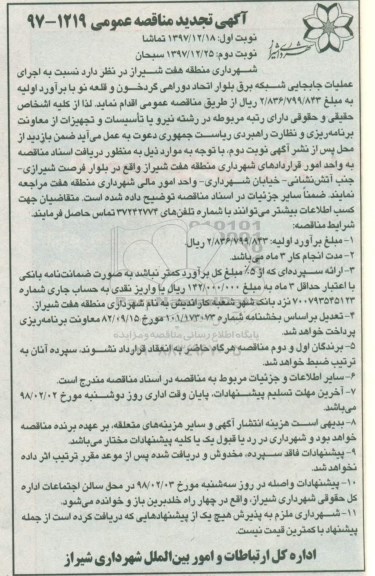 آگهی تجدید مناقصه عمومی ۱۲۱۹-۹۷
نوبت اول: ۱۳۹۷/۱۲/۱۸ تماشا
نوبت دوم: ۱۳۹۷/۱۲/۲۵ سبحان
شهرداری منطقه هفت شیراز در نظر دارد نسبت به اجرای
عملیات جابجایی شبکه برق بلوار اتحاد دوراهی کردخسون و قلعه نو با برآورد اولیه
به مبلغ ۲/۸۳۶/۷۹۹/۸۴۳ ریال از طریق مناقصه عمومی اقدام نماید. لذا از کلیه اشخاص
حقیقی و حقوقی دارای رتبه مربوطه در رشته نیرو یا تأسیسات و تجهیزات از معاونت
برنامه‌ریزی و نظارت راهبردی ریاست جمهوری دعوت به عمل می‌آید ضمن بازدید از
محل پس از نشر آگهی نوبت دوم، با توجه به موارد ذیل به منظور دریافت اسناد مناقصه
به واحد امور قراردادهای شهرداری منطقه هفت شیراز واقع در بلوار فرصت شیرازی-
جنب آتش‌نشانی- خیابان شهرداری- واحد امور مالی شهرداری منطقه هفت مراجعه
نمایند. ضمناً سایر جزئیات در اسناد مناقصه توضیح داده شده است. متقاضیان جهت
کسب اطلاعات بیشتر می‌توانند با شماره تلفن‌های ۳۷۲۴۲۷۷۴ تماس حاصل فرمایند.
شرایط مناقصه:
۱-مبلغ برآورد اولیه: ۲/۸۳۶/۷۹۹/۸۴۳ ریال.
۲-مدت انجام کار ۳ ماه می‌باشد.
۳-ارائه سپرده‌ای که از ۵٪ مبلغ کل برآورد کمتر نباشد به صورت ضمانت‌نامه بانکی
با اعتبار حداقل ۳ ماه به مبلغ ۱۴۲/۰۰۰/۰۰۰ ریال یا واریز نقدی به حساب جاری شماره
۷۰۰۷۹۳۵۴۵۱۲۳ نزد بانک شهر شعبه کاراندیش به نام شهرداری منطقه هفت شیراز.
۴-تعدیل براساس بخشنامه شماره ۱۰۱/۱۷۳۰۷۳ مورخ ۸۲/۰۹/۱۵ معاونت برنامه‌ریزی
پرداخت خواهد شد.
۵- برندگان اول و دوم مناقصه هرگاه حاضر به انعقاد قرارداد نشوند، سپرده آنان به
ترتیب ضبط خواهد شد.
۶-سایر اطلاعات و جزئیات مربوط به مناقصه در اسناد مناقصه مندرج است.
۷-آخرین مهلت تسلیم پیشنهادات، پایان وقت اداری روز دوشنبه مورخ ۹۸/۰۲/۰۲
می‌باشد.
۸-بدیهی است هزینه انتشار آگهی و سایر هزینه‌های متعلقه، بر عهده برنده مناقصه
خواهد بود و شهرداری در رد یا قبول یک یا کلیه پیشنهادات مختار می‌باشد.
۹-پیشنهادات فاقد سپرده، مخدوش و دریافت شده پس از موعد مقرر ترتیب اثر داده
نخواهد شد.
۱۰-پیشنهادات واصله در روز سه‌شنبه مورخ ۹۸/۰۲/۰۳ در محل سالن اجتماعات اداره
کل حقوقی شهرداری شیراز، واقع در چهار راه خلدبرین باز و خوانده می‌شود.
۱۱-شهرداری ملزم به پذیرش هیچ یک از پیشنهادهایی که دریافت کرده است از جمله
پیشنهاد با کمترین قیمت نیست.
اداره کل ارتباطات و امور بین‌الملل شهرداری شیراز